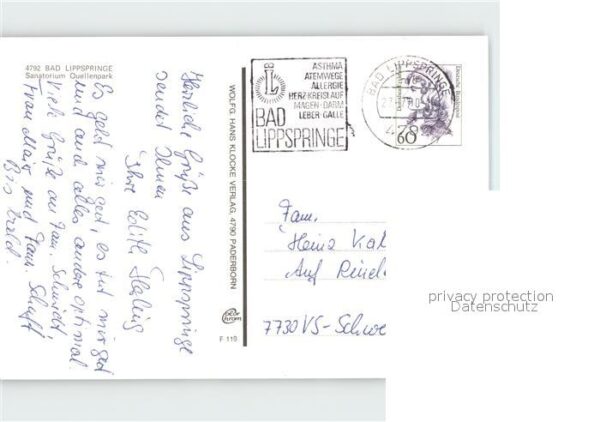 4792 BAD LIPPSPRINGE
Sanatorium Quellenpark
Herzliche Grüße aus Lippspringe
sendet Ihnen
Ihre Edith
Es geht mir gut, es tut mir gut
und auch alles andere optimal.
Viele Grüße an Fam. Schmidt,
Frau Maier und Fam. Schaft!
Bis bald.
WOLFG. HANS KLOCKE VERLAG, 4790 PADERBORN
F 119
BAD
LIPPSPRINGE
ASTHMA
ATEMWEGE
ALLERGIE
HERZ·KREISLAUF
MAGEN-DARM
LEBER-GALLE
BAD LIPPSPRINGE
60
Fam.
Heinz Kal
Auf Rinde
7730 VS-Schwe
privacy protection
Datenschutz